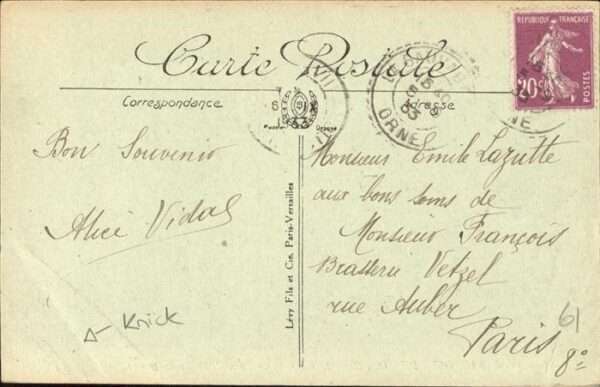 Carte Postale
Correspondance
Adresse
RÉPUBLIQUE FRANÇAISE
20c
POSTES
ORNE
Bon Souvenir
Alice Vidal
Monsieur Emile Lazutte
aux bons soins de
Monsieur François
Brasserie Vetzel
rue Auber
Paris
61
8°
Knick
Lévy Fils et Cie, Paris-Versailles